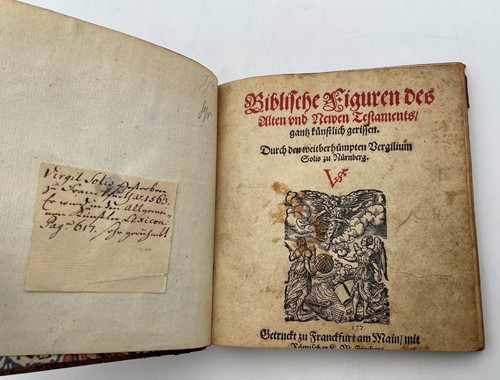 Virgil Solis
1560.
Er wird in dem Allgemei-
nen Künstler Lexicon
Pag. 617. sehr gerühmt
Biblische Figuren des
Alten vnd Newen Testaments/
gantz künstlich gerissen.
Durch den weitberhümpten Vergilium
Solis zu Nürnberg.
Getruckt zu Franckfurt am Main/ mit